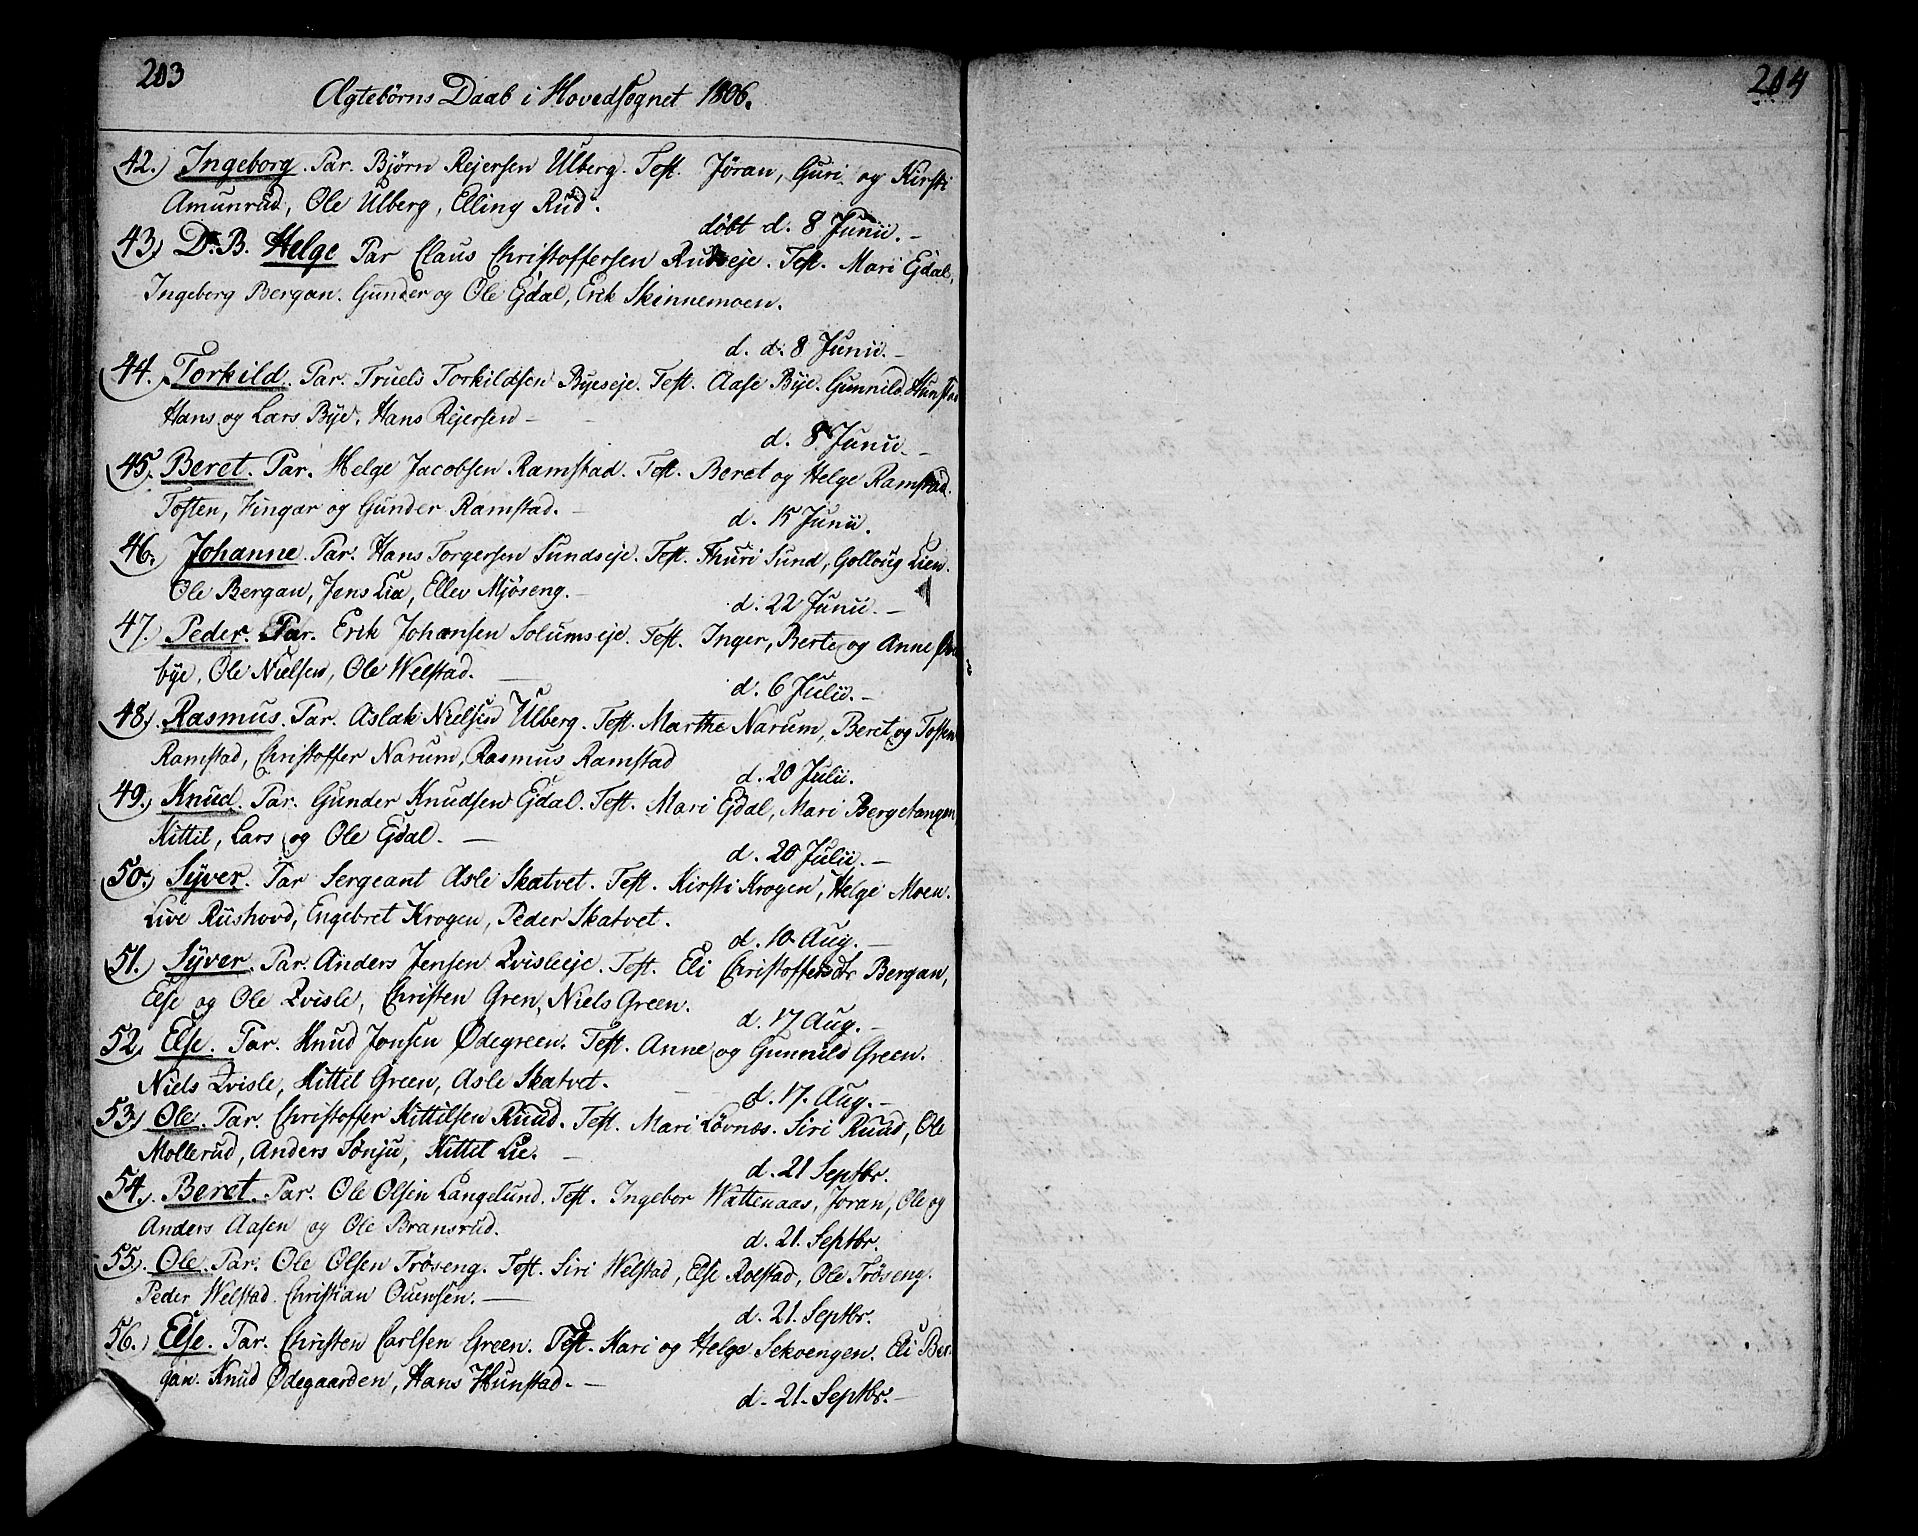 203
Ægtebørns Daab i Hovedsognet 1806.
42.) Ingeborg. Par. Bjørn Rejersen Ulberg. Test. Jøran, Guri og Kirsti
Amunrud, Ole Ulberg, Elling Rud.
døbt d. 8 Junii.
43.) D. B. Helge Par Claus Christoffersen Rudseje. Test. Mari Ejdal,
Ingeborg Bergan. Gunder og Ole Ejdal, Erik Skinnemoen.
d. d. 8 Junii.
44. Torkild. Par. Truels Torkildsen Byeseje. Test. Aase Bye. Gunnild Hunstad
Hans og Lars Bye. Hans Rejersen
d. 8 Junii.
45. Beret. Par. Helge Jacobsen Ramstad. Test. Beret og Helge Ramstad.
Tosten, Fingar og Gunder Ramstad.
d. 15 Junii.
46. Johanne. Par. Hans Torgersen Sundseje. Test. Thuri Sund, Golloug Lien.
Ole Bergan, Jens Lia, Ellev Mjøseng.
d. 22 Junii.
47.) Peder. Par. Erik Johansen Solumseje. Test. Inger, Berte og Anne
bye, Ole Nielsen, Ole Welstad.
d. 6 Julii.
48. Rasmus. Par. Aslak Nielsen Ulberg. Test. Marthe Narum, Beret og Tosten
Ramstad, Christoffer Narum, Rasmus Ramstad
d. 20 Julii.
49.) Knud. Par. Gunder Knudsen Ejdal. Test. Mari Ejdal, Mari Bergetangen,
Kittil, Lars og Ole Ejdal.
d. 20 Julii.
50.) Syver. Par Sergeant Asle Skatvet. Test. Kirsti Krogen, Helge Moen.
Live Rushovd, Engebret Krogen, Peder Skatvet.
d. 10 Aug.
51.) Syver. Par. Anders Jensen Qvisleeje. Test. Eli Christoffersdr Bergan,
Else og Ole Qvisle, Christen Gren, Niels Green.
d. 17 Aug.
52. Else. Par. Knud Jonsen Ødegreen. Test. Anne og Gunnild Green.
Niels Qvisle, Kittil Green, Asle Skatvet.
d. 17. Aug.
53.) Ole. Par. Christoffer Kittilsen Ruud. Test. Mari Løvnæs. Siri Ruud, Ole
Mollerud, Anders Sønju, Kittil Lie.
d. 21 Septbr.
54. Beret. Par. Ole Olsen Langelund. Test. Ingebor Wattenaas, Joran, Ole og
Anders Aasen og Ole Bransrud.
d. 21. Septbr.
55. Ole. Par. Ole Olsen Trøseng. Test. Siri Welstad, Else Rolstad, Ole Trøseng.
Peder Welstad. Christian Ouensen.
d. 21. Septbr.
56.) Else. Par. Christen Carlsen Green. Test. Mari og Helge Sekvengen. Eli Ber-
gan. Knud Ødegaarden, Hans Hunstad.
d. 21. Septbr.
204